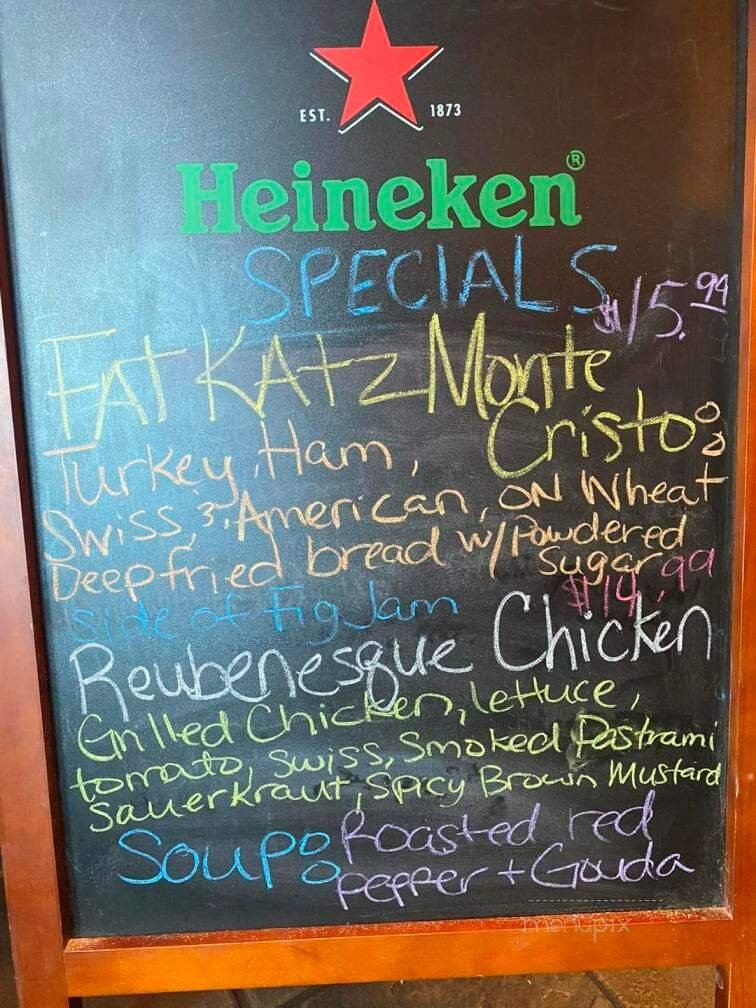 EST. 1873
Heineken®
SPECIALS
$15.99
FAT KATZ Monte
Cristo:
Turkey, Ham,
Swiss, & American, ON Wheat
Deep fried bread w/ Powdered
Sugar
side of Fig Jam
$14.99
Reubenesque Chicken
Grilled Chicken, lettuce,
tomato, Swiss, Smoked Pastrami
Sauerkraut, Spicy Brown Mustard
Soup: Roasted red
pepper + Gouda
menupix